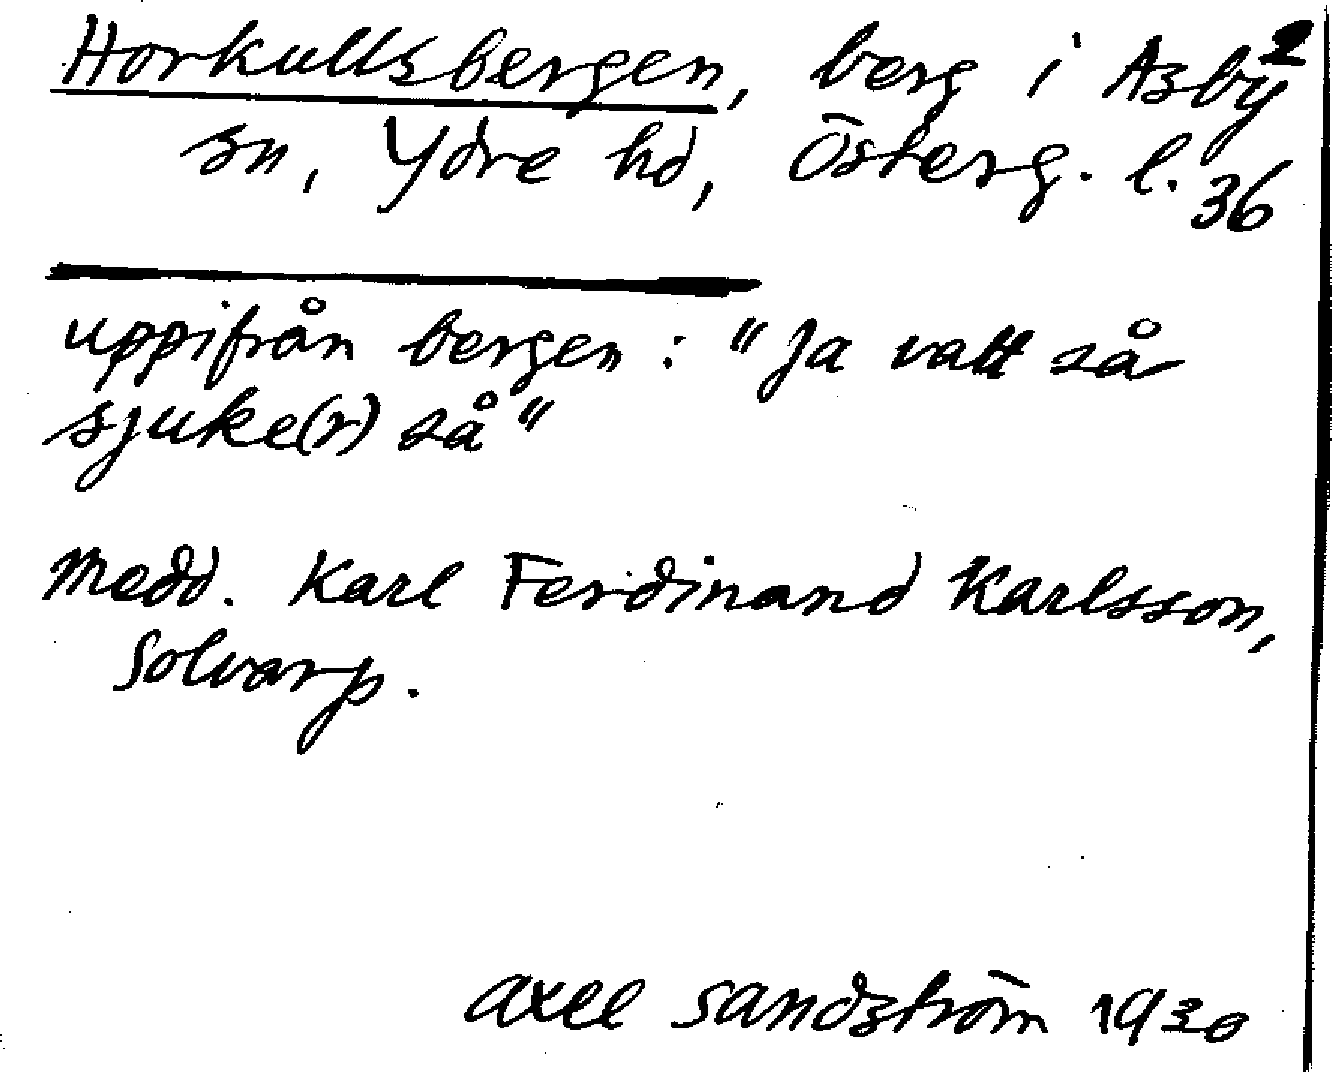 Horkullsbergen, berg i Asby 2
sn, Ydre hd, Österg. l. 36
uppifrån bergen: "Ja vatt så
sjuke(r) så"
Medd. Karl Ferdinand Karlsson,
Solvarp.
Axel Sandström 1930